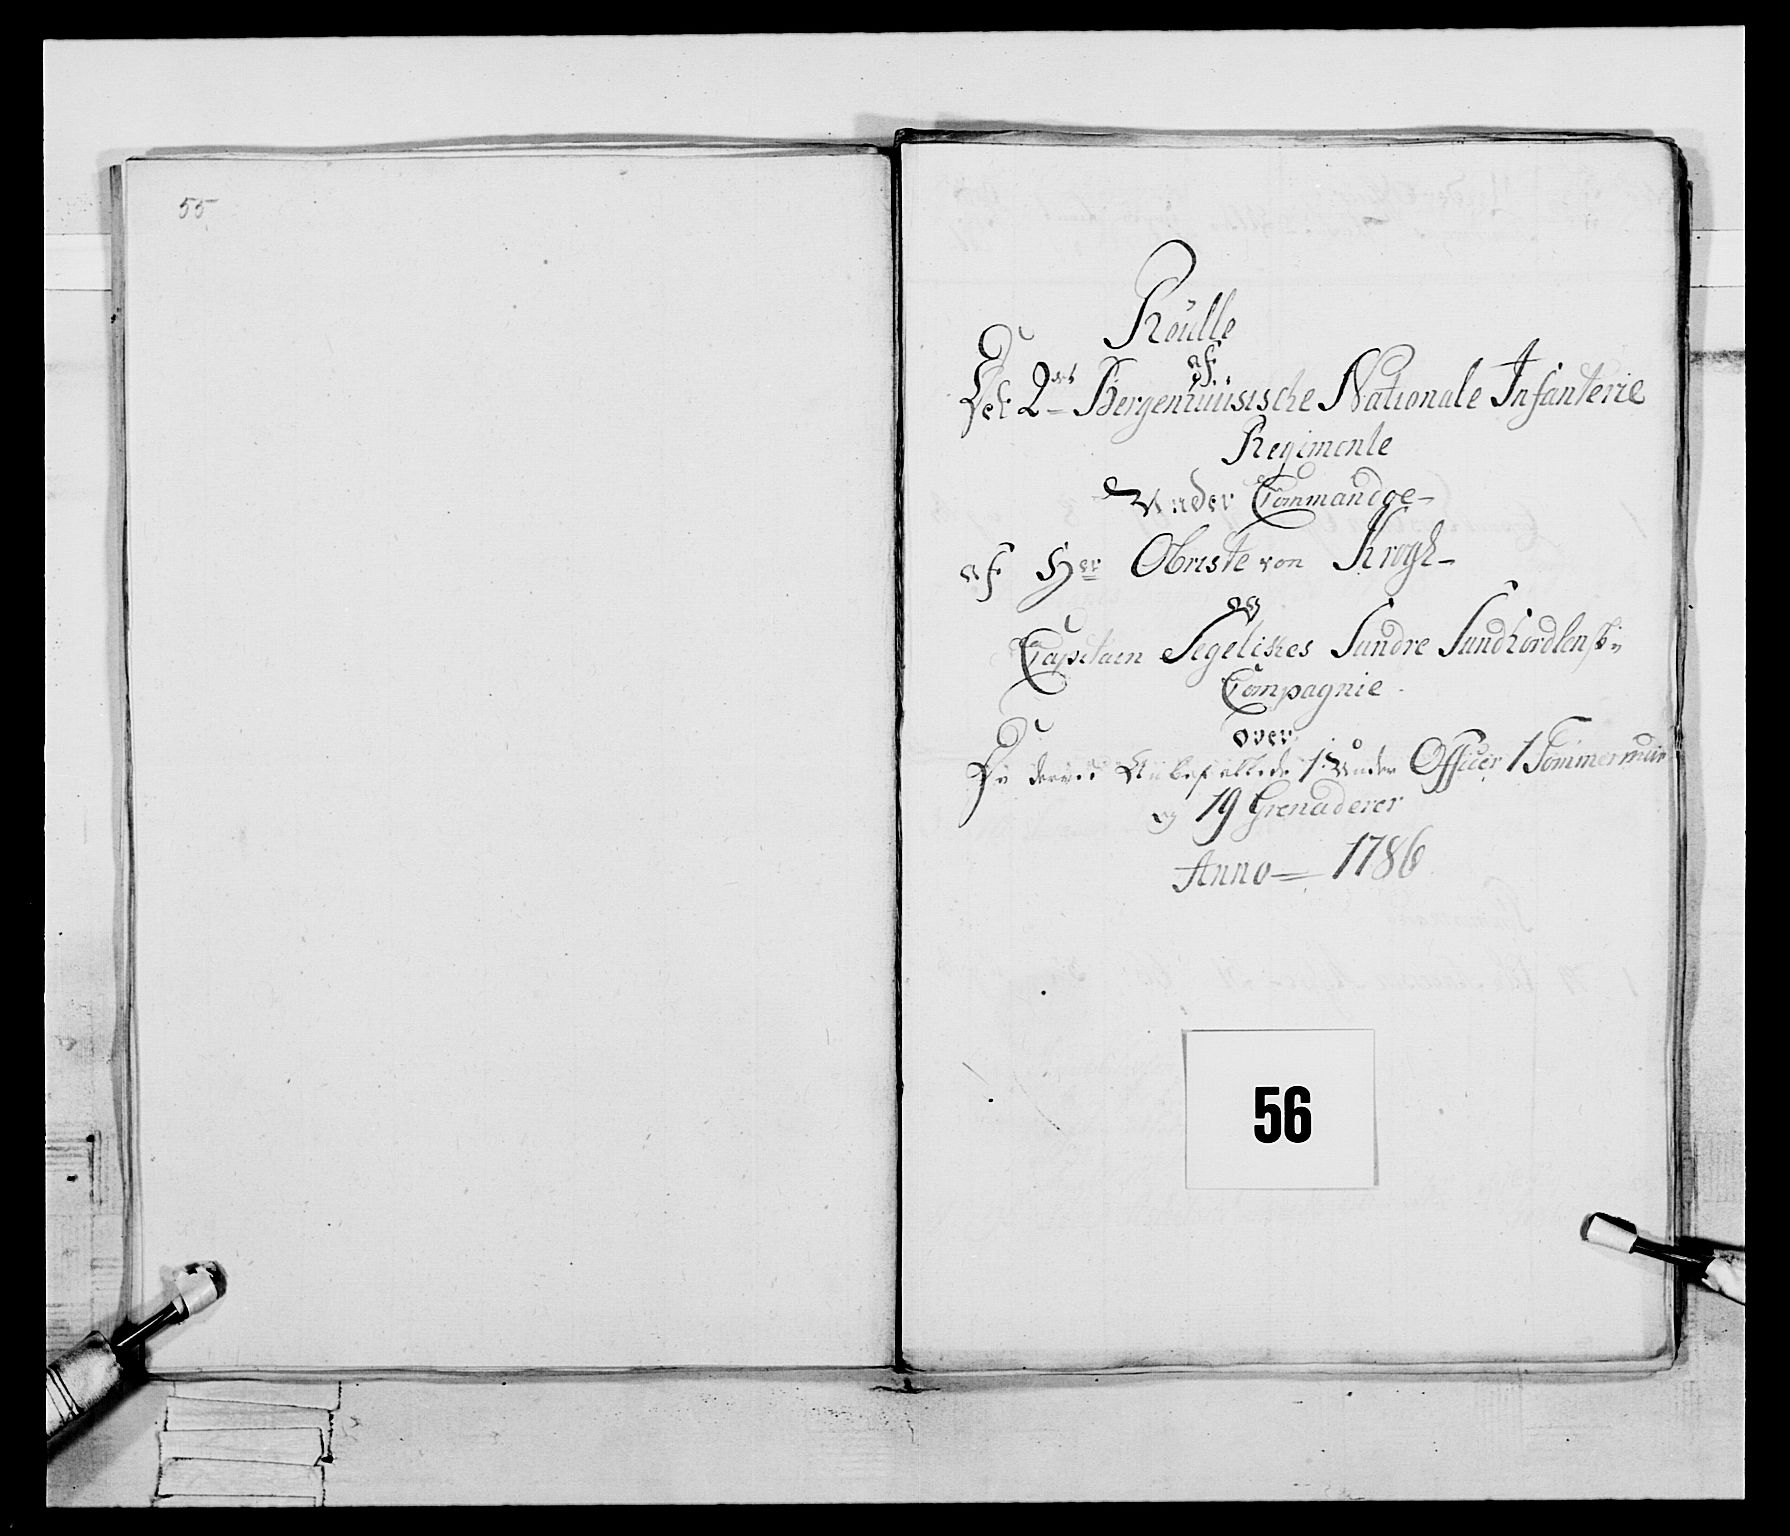 55
Roulle
af
Det 2det Bergenhuusische Nationale Infanterie
Regimente
Under Commandoe
af Hr Obriste von Krogh
og
Capitain Segelckes Søndre Sundhordlensk
Compagnie
over
De 1 Under Officer 1 Tømmermand
og 19 Grenaderer
Anno 1786
56